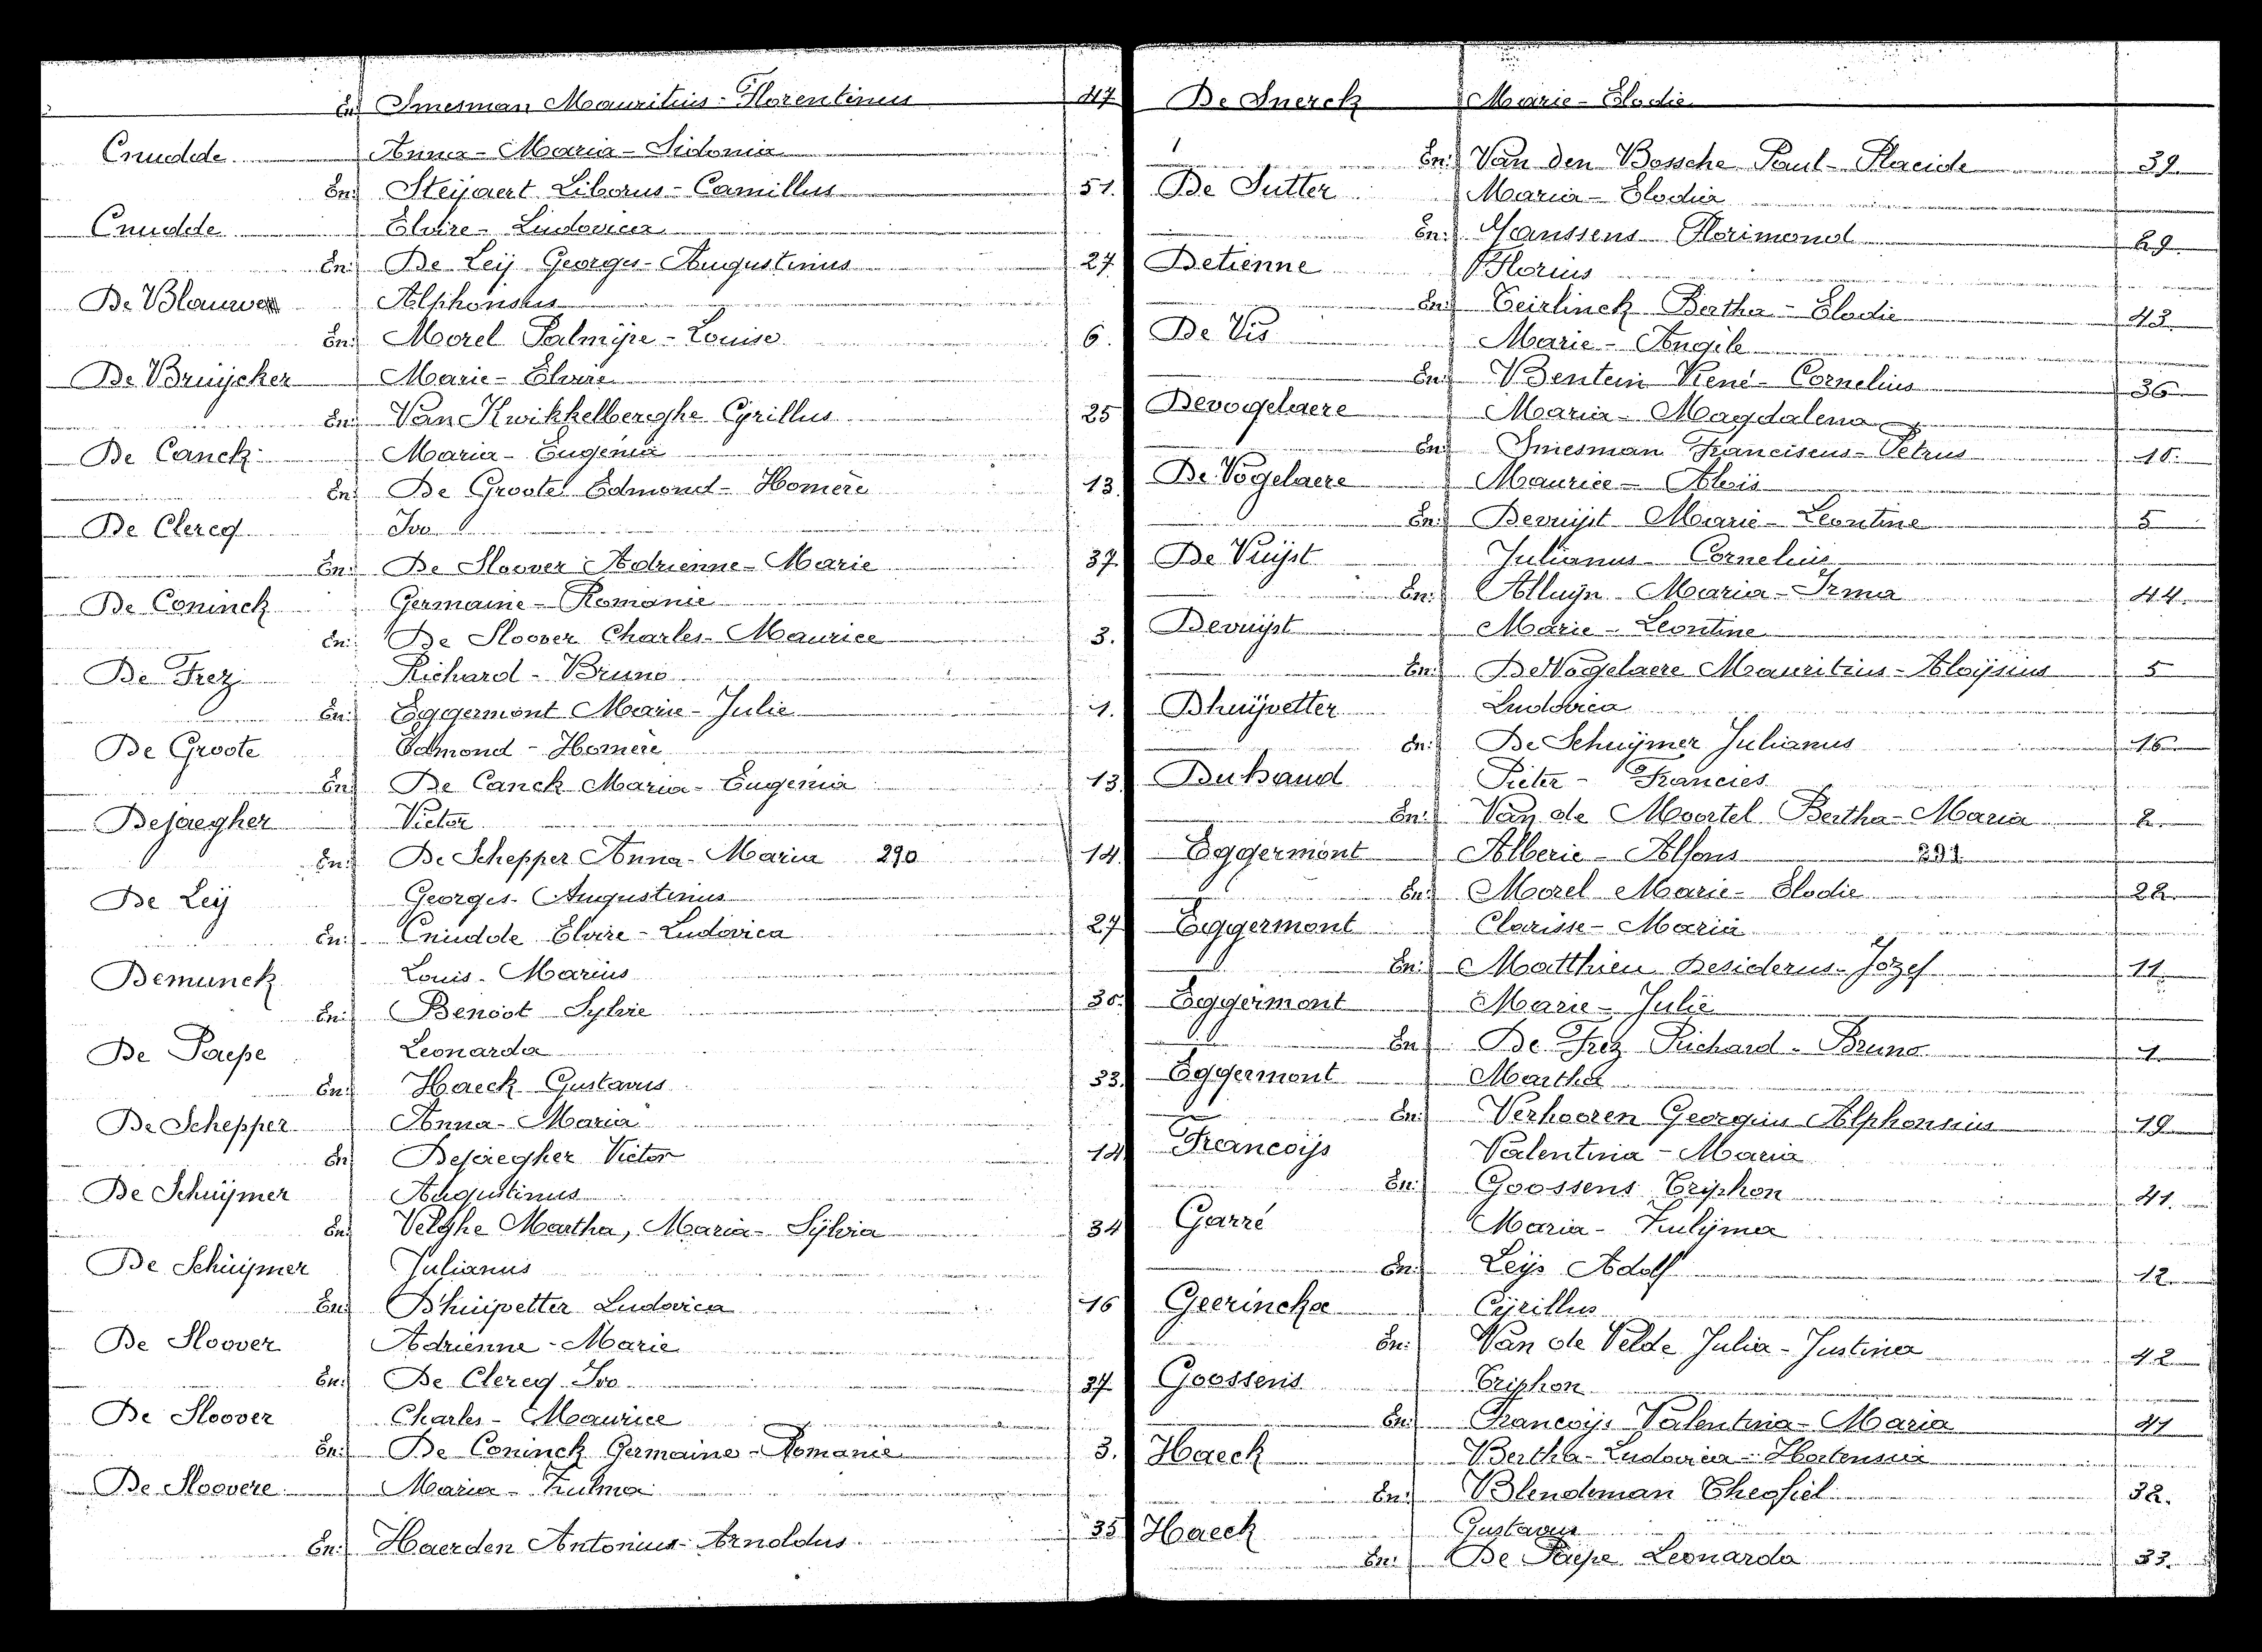 En: Imesman Mauritius - Florentinus 47
Cnudde Anna - Maria - Sidonia
En: Steijaert Liborus - Camillus 51.
Cnudde Elvire - Ludovica
En: De Leij Georges - Augustinus 27
De Blauwe Alphonsus
En: Morel Palmÿre - Louise 6.
De Bruijcker Marie - Elvire
En: Van Kwikkelberghe Cyrillus 25
De Canck Maria - Eugenia
En: De Groote Edmond - Homère 13
De Clercq Ivo
En: De Sloover Adrienne - Marie 37
De Coninck Germaine - Romanie
En: De Sloover Charles - Maurice 3.
De Frez Richard - Bruno
En: Eggermont Marie - Julie 1.
De Groote Edmond - Homère
En: De Canck Maria - Eugenia 13
Dejaegher Victor
En: De Schepper Anna - Maria 290 14.
De Leij Georges - Augustinus
En: Cnudde Elvire - Ludovica 27
Demunck Louis - Marius
En: Benoot Sylvie 30.
De Paepe Leonarda
En: Haeck Gustavus 33.
De Schepper Anna - Maria
En: Dejaegher Victor 14
De Schuijmer Augustinus
En: Velghe Martha, Maria - Sÿlvia 34
De Schuijmer Julianus
En: Dhuijvetter Ludovica 16
De Sloover Adrienne - Marie
En: De Clercq Ivo 37
De Sloover Charles - Maurice
En: De Coninck Germaine - Romanie 3.
De Sloovere Maria - Zulma
En: Haerden Antonius - Arnoldus 35
De Snerck Marie - Elodie
En: Van den Bossche Paul - Placide 39
De Sutter Maria - Elodia
En: Janssens Florimond 29
Detienne Florius
En: Teirlinck Bertha - Elodie 43
De Vis Marie - Angèle
En: Bentein René - Cornelius 36
Devogelaere Maria - Magdalena
En: Imesman Franciscus - Petrus 18.
De Vogelaere Maurice - Aloïs
En: Devuijst Marie - Leontine 5
De Vuijst Julianus - Cornelius
En: Alluijn Maria - Irma 44.
Devuijst Marie - Leontine
En: De Vogelaere Mauritius - Aloÿsius 5
Dhuijvetter Ludovica
En: De Schuijmer Julianus 16
Duhaud Pieter - Francies
En: Van de Moortel Bertha - Maria 2.
Eggermont Alberic - Alfons 291
En: Morel Marie - Elodie 22.
Eggermont Clarisse - Maria
En: Matthieu Desiderus - Jozef 11.
Eggermont Marie - Julie
En: De Frez Richard - Bruno 1.
Eggermont Martha
En: Verhaeren Georgius Alphonsius 19
Francoijs Valentina - Maria
En: Goossens Triphon 41.
Garré Maria - Zulÿma
En: Leijs Adolf 12.
Geerinckx Cÿrillus
En: Van de Velde Julia - Justina 42
Goossens Triphon
En: Francoijs Valentina - Maria 41
Haeck Bertha - Ludovica - Hortensia
En: Blendeman Theofiel 32.
Haeck Gustavus
En: De Paepe Leonarda 33.